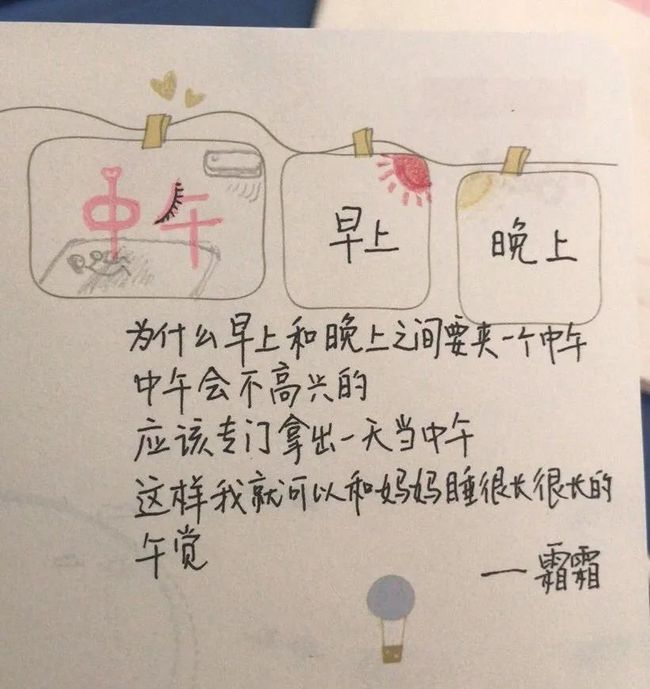 中午
早上
晚上
为什么早上和晚上之间要夹一个中午
中午会不高兴的
应该专门拿出一天当中午
这样我就可以和妈妈睡很长很长的
午觉
——霜霜